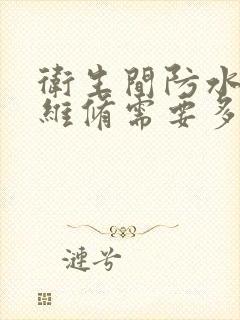 衛生間防水
維脩需要多
漣兮